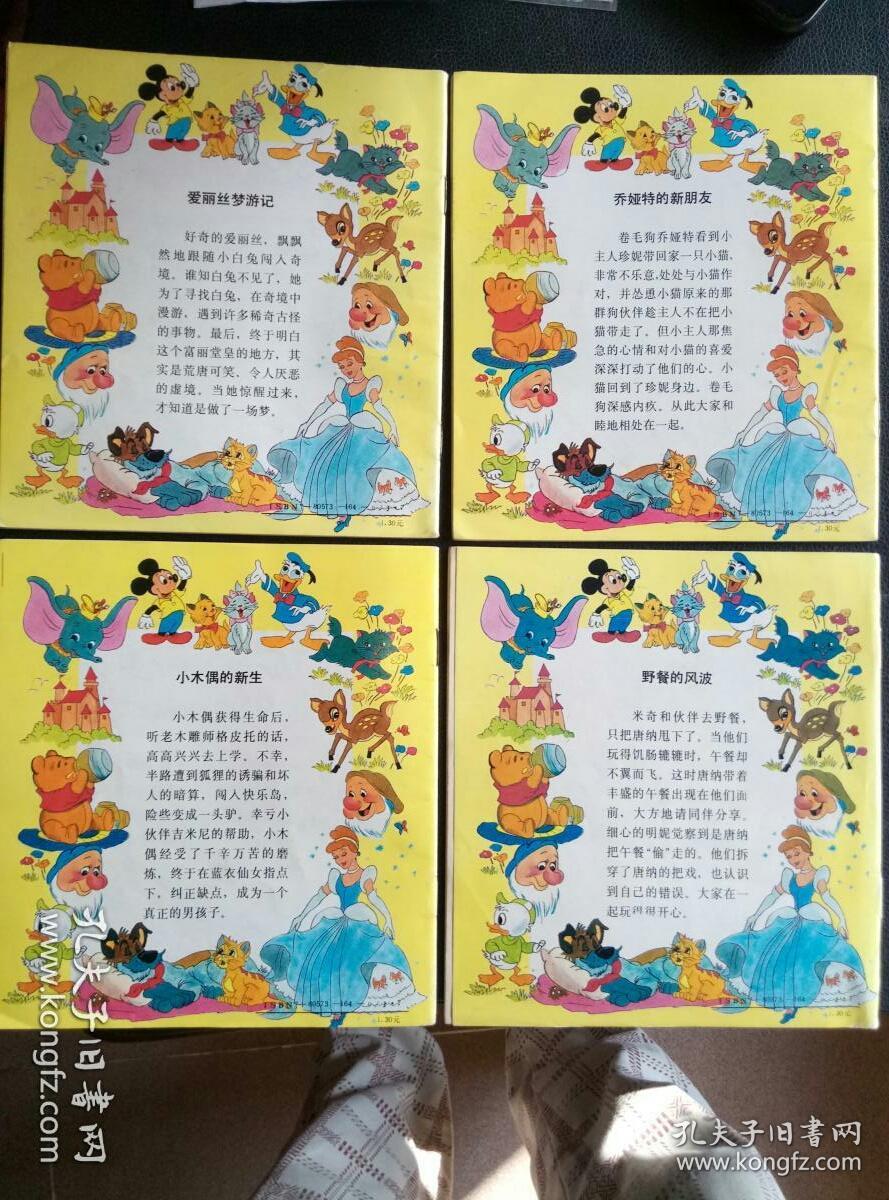 爱丽丝梦游记
好奇的爱丽丝，飘飘
然地跟随小白兔闯入奇
境。谁知白兔不见了，她
为了寻找白兔，在奇境中
漫游，遇到许多稀奇古怪
的事物。最后，终于明白
这个富丽堂皇的地方，其
实是荒唐可笑、令人厌恶
的虚境。当她惊醒过来，
才知道是做了一场梦。
1.30元
乔娅特的新朋友
卷毛狗乔娅特看到小
主人珍妮带回家一只小猫，
非常不乐意，处处与小猫作
对，并怂恿小猫原来的那
群狗伙伴趁主人不在把小
猫带走了。但小主人那焦
急的心情和对小猫的喜爱
深深打动了他们的心。小
猫回到了珍妮身边。卷毛
狗深感内疚。从此大家和
睦地相处在一起。
1.30元
小木偶的新生
小木偶获得生命后，
听老木雕师格皮托的话，
高高兴兴去上学。不幸，
半路遭到狐狸的诱骗和坏
人的暗算，闯入快乐岛，
险些变成一头驴。幸亏小
伙伴吉米尼的帮助，小木
偶经受了千辛万苦的磨
炼，终于在蓝衣仙女指点
下，纠正缺点，成为一个
真正的男孩子。
1.30元
野餐的风波
米奇和伙伴去野餐，
只把唐纳甩下了。当他们
玩得饥肠辘辘时，午餐却
不翼而飞。这时唐纳带着
丰盛的午餐出现在他们面
前，大方地请同伴分享。
细心的明妮觉察到是唐纳
把午餐“偷”走的。他们拆
穿了唐纳的把戏，也认识
到自己的错误。大家在一
起玩得很开心。
1.30元
孔夫子旧书网
www.kongfz.com
孔夫子旧书网
www.kongfz.com